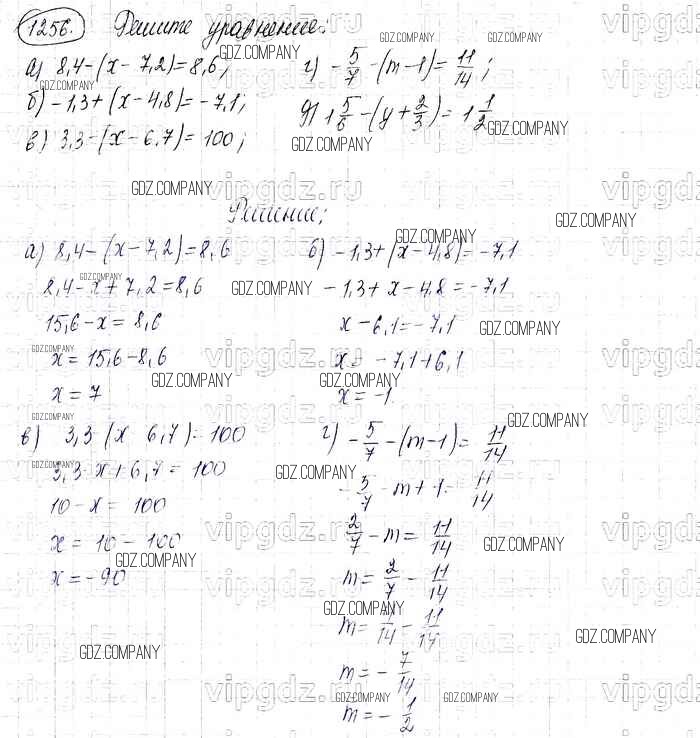 1256. Решите уравнение:
а) 8,4-(х-7,2)=8,6;
б) -1,3+(х-4,8)=-7,1;
в) 3,3-(х-6,7)=100;
г) -5/7-(m-1)=11/14;
д) 1 5/6-(y+2/3)=1 1/2
Решение;
а) 8,4-(х-7,2)=8,6
8,4-х+7,2=8,6
15,6-х=8,6
х=15,6-8,6
х=7
б) -1,3+(х-4,8)=-7,1
-1,3+х-4,8=-7,1
х-6,1=-7,1
х=-7,1+6,1
х=-1
в) 3,3-(х-6,7)=100
3,3-х+6,7=100
10-х=100
х=10-100
х=-90
г) -5/7-(m-1)=11/14
-5/7-m+1=11/14
2/7-m=11/14
m=2/7-11/14
m=4/14-11/14
m=-7/14
m=-1/2
GDZ.COMPANY
vipgdz.ru